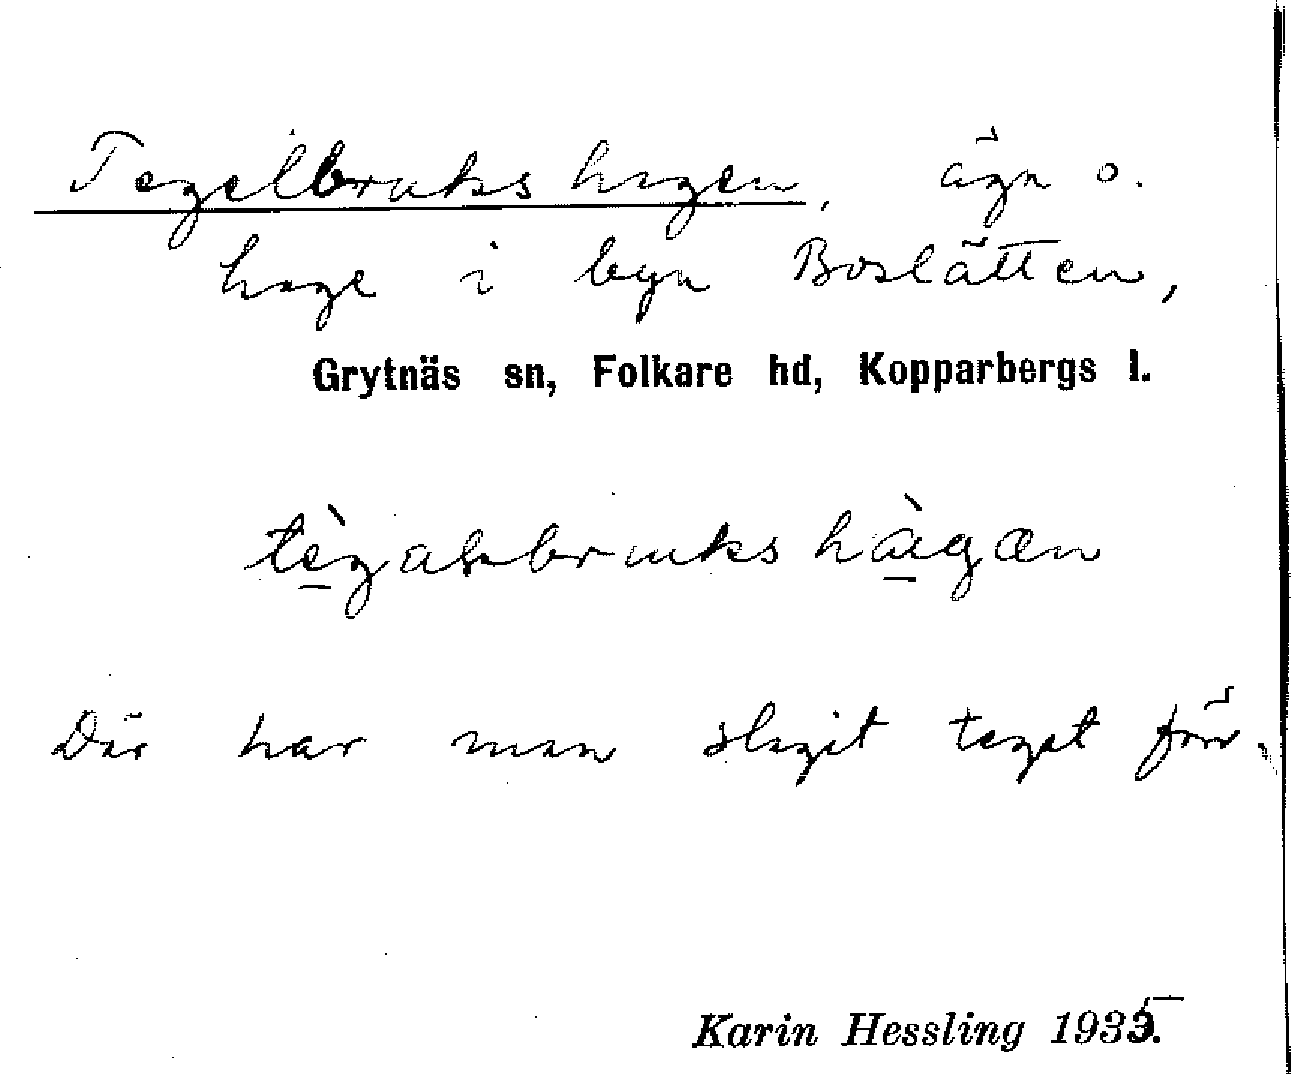 Tegelbrukshagen, ägn o.
hage i byn Boslätten,
Grytnäs sn, Folkare hd, Kopparbergs l.
hàgan
Där har man slagit teget förr.
Karin Hessling 1935.